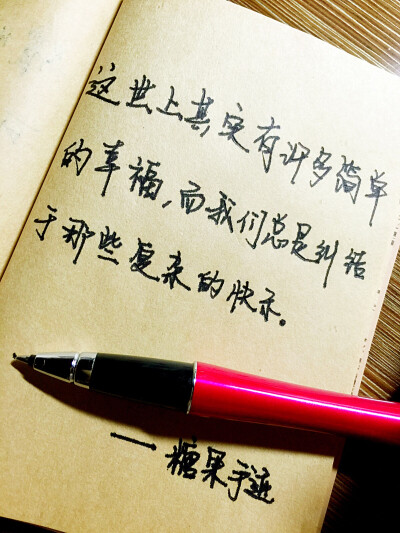 这世上其实有许多简单
的幸福，而我们总是纠结
于那些复杂的快乐。
一糖果手迹